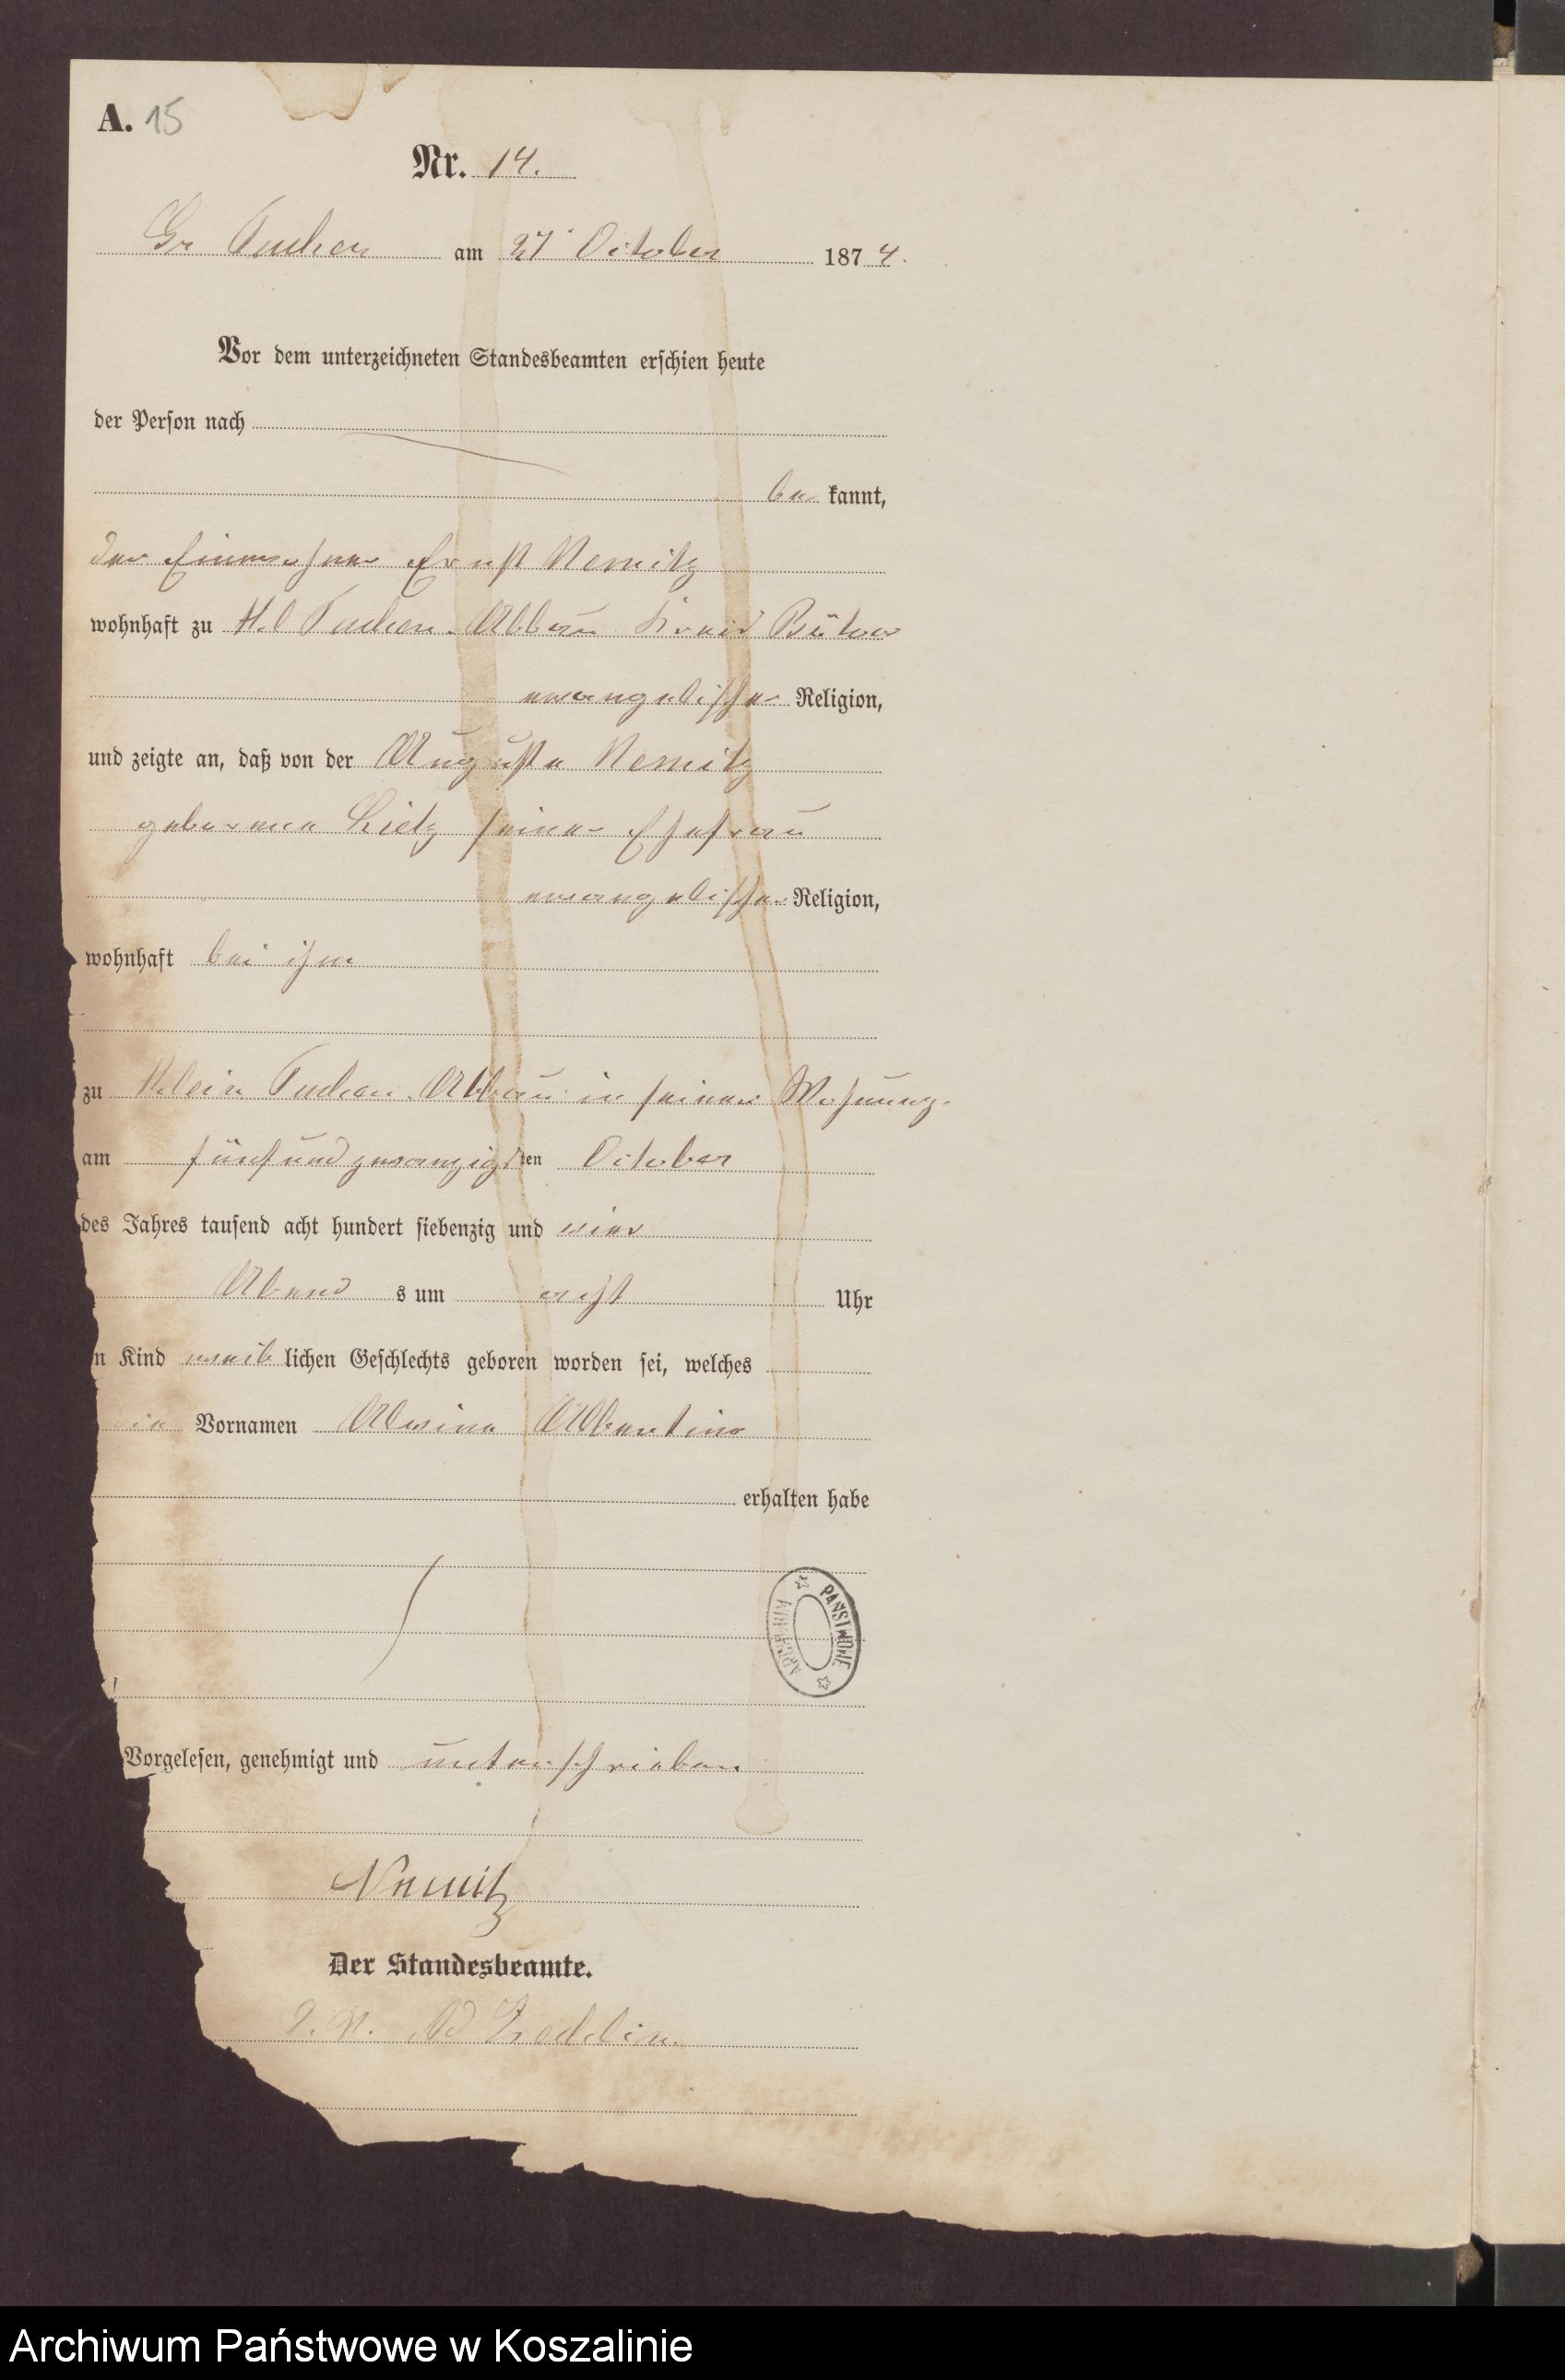 A. 15
Nr. 14.
Gr Tuchen am 27 October 1874.
Vor dem unterzeichneten Standesbeamten erschien heute
der Person nach
be kannt,
der Einwohner Ernst Nemitz
wohnhaft zu Kl Tuchen Abbau Kreis Bütow
evangelischer Religion,
und zeigte an, daß von der Auguste Nemitz
geborenen Lietz seiner Ehefrau
evangelischer Religion,
wohnhaft bei ihm
zu Klein Tuchen Abbau in seiner Wohnung
am fünfundzwanzigsten October
des Jahres tausend acht hundert siebenzig und vier
Abend s um acht Uhr
n Kind weib lichen Geschlechts geboren worden sei, welches
Vornamen Alwine Albertine
erhalten habe
Vorgelesen, genehmigt und unterschrieben
Nemitz
Der Standesbeamte.
PAŃSTWOWE
Archiwum Państwowe w Koszalinie